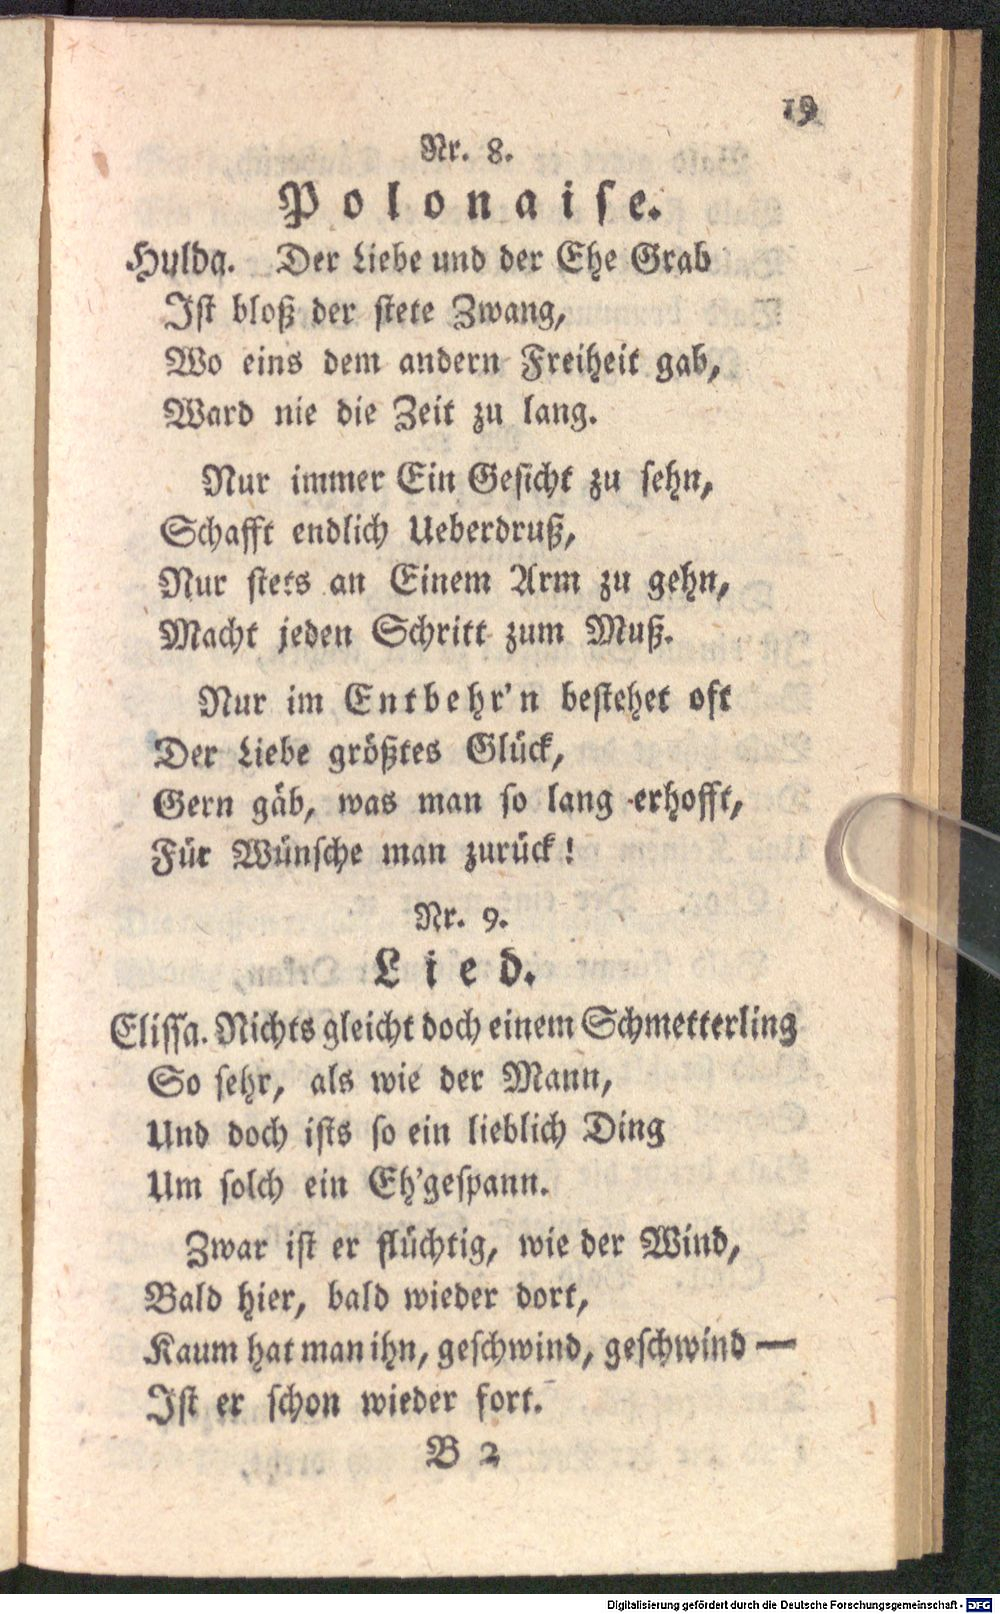 19
Nr. 8.
Polonaise.
Hulda. Der Liebe und der Ehe Grab
Ist bloß der stete Zwang,
Wo eins dem andern Freiheit gab,
Ward nie die Zeit zu lang.
Nur immer Ein Gesicht zu sehn,
Schafft endlich Ueberdruß,
Nur stets an Einem Arm zu gehn,
Macht jeden Schritt zum Muß.
Nur im Entbehr'n bestehet oft
Der Liebe größtes Glück,
Gern gäb, was man so lang erhofft,
Für Wünsche man zurück!
Nr. 9.
Lied.
Elissa. Nichts gleicht doch einem Schmetterling
So sehr, als wie der Mann,
Und doch ists so ein lieblich Ding
Um solch ein Eh'gespann.
Zwar ist er flüchtig, wie der Wind,
Bald hier, bald wieder dort,
Kaum hat man ihn, geschwind, geschwind —
Ist er schon wieder fort.
B 2
Digitalisierung gefördert durch die Deutsche Forschungsgemeinschaft - DFG